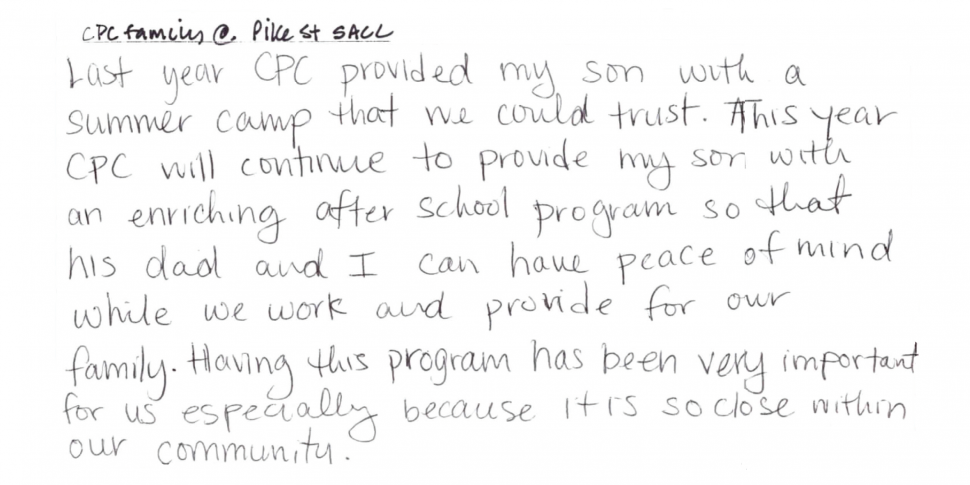 CPC family @. Pike St SACC
Last year CPC provided my son with a
summer camp that we could trust. This year
CPC will continue to provide my son with
an enriching after school program so that
his dad and I can have peace of mind
while we work and provide for our
family. Having this program has been very important
for us especially because it is so close within
our community.